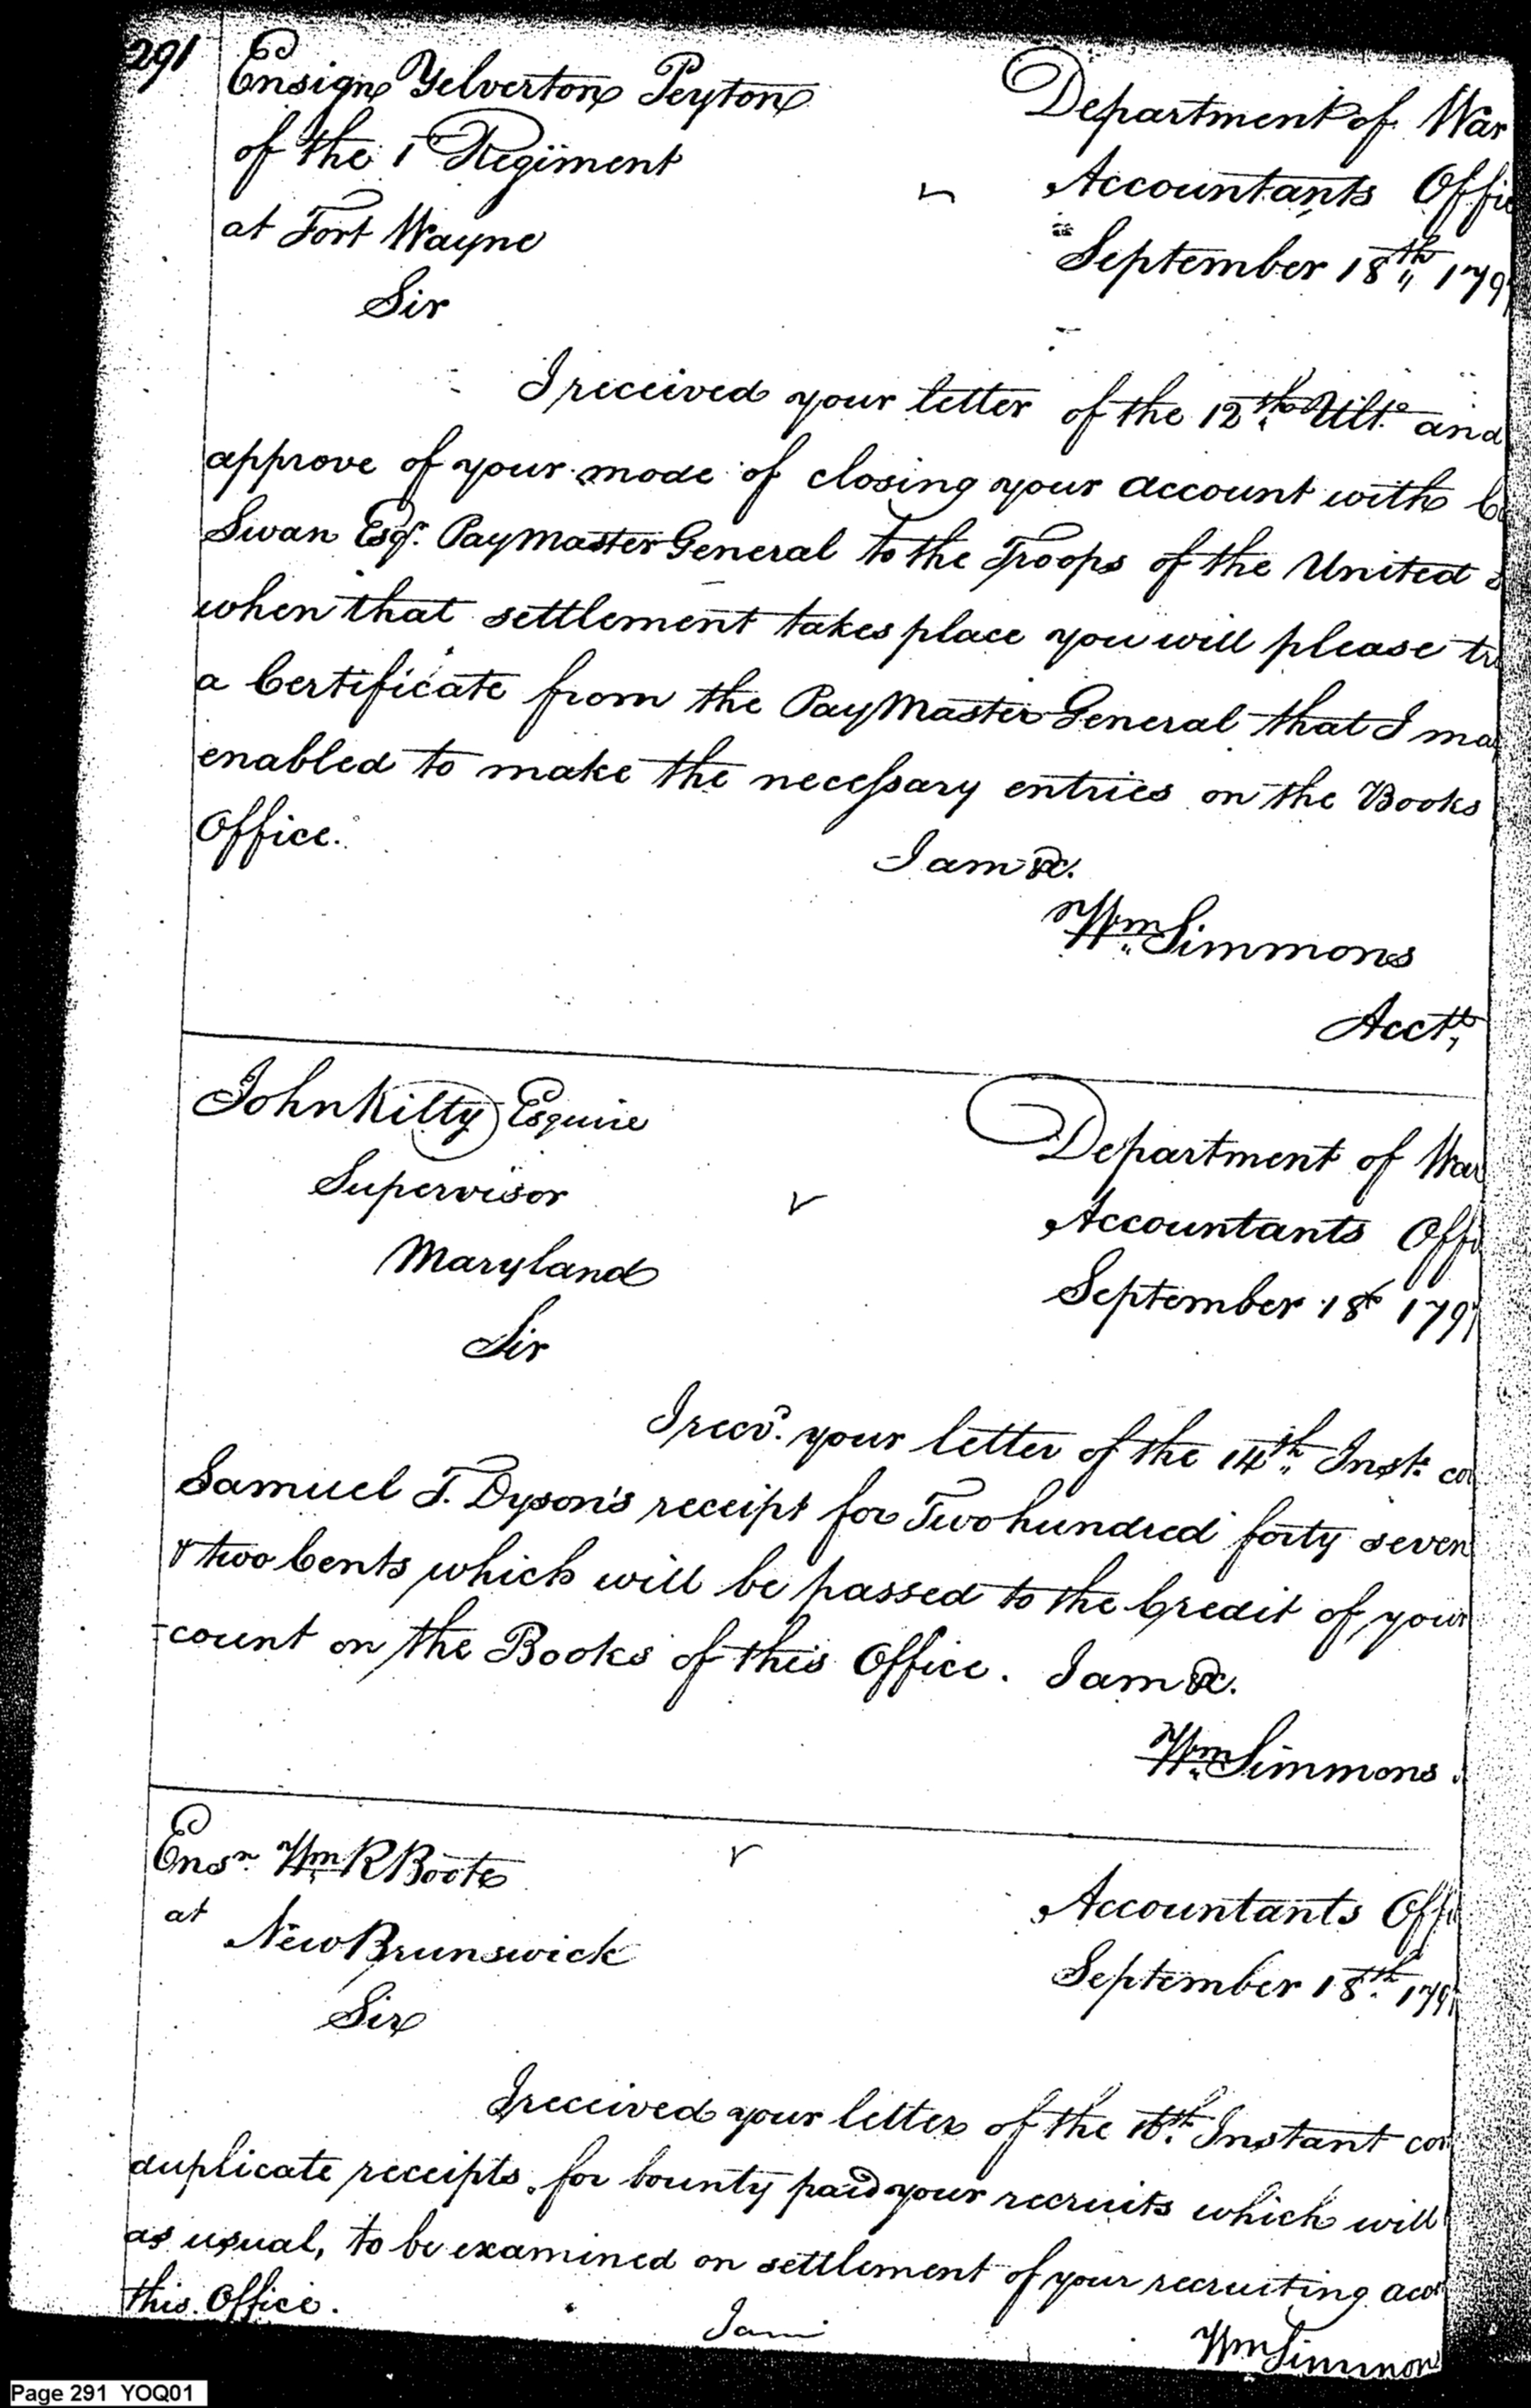 291
Ensign Yelverton Peyton
of the 1st Regiment
at Fort Wayne
Sir
Department of War
Accountants Offi
September 18th 179
I received your letter of the 12th Ulto and
approve of your mode of closing your account with C
Swan Esqr. PayMaster General to the Troops of the United S
when that settlement takes place you will please tr
a Certificate from the PayMaster General that I ma
enabled to make the necessary entries on the Books
Office.
I am &c.
Wm Simmons
Acctt,
John Kilty Esquire
Supervisor
Maryland
Sir
Department of War
Accountants Offi
September 18th 179
I recd. your letter of the 14th Inst: co
Samuel T. Dyson's receipt for Two hundred forty seven
& two Cents which will be passed to the Credit of your
-count on the Books of this Office. I am &c.
Wm Simmons
Ensn. Wm R Boote
at
New Brunswick
Sir
Accountants Offi
September 18th 179
I received your letter of the 16th Instant con
duplicate receipts for bounty paid your recruits which will
as usual, to be examined on settlement of your recruiting acco
this Office.
I am
Wm Simmon
Page 291 YOQ01